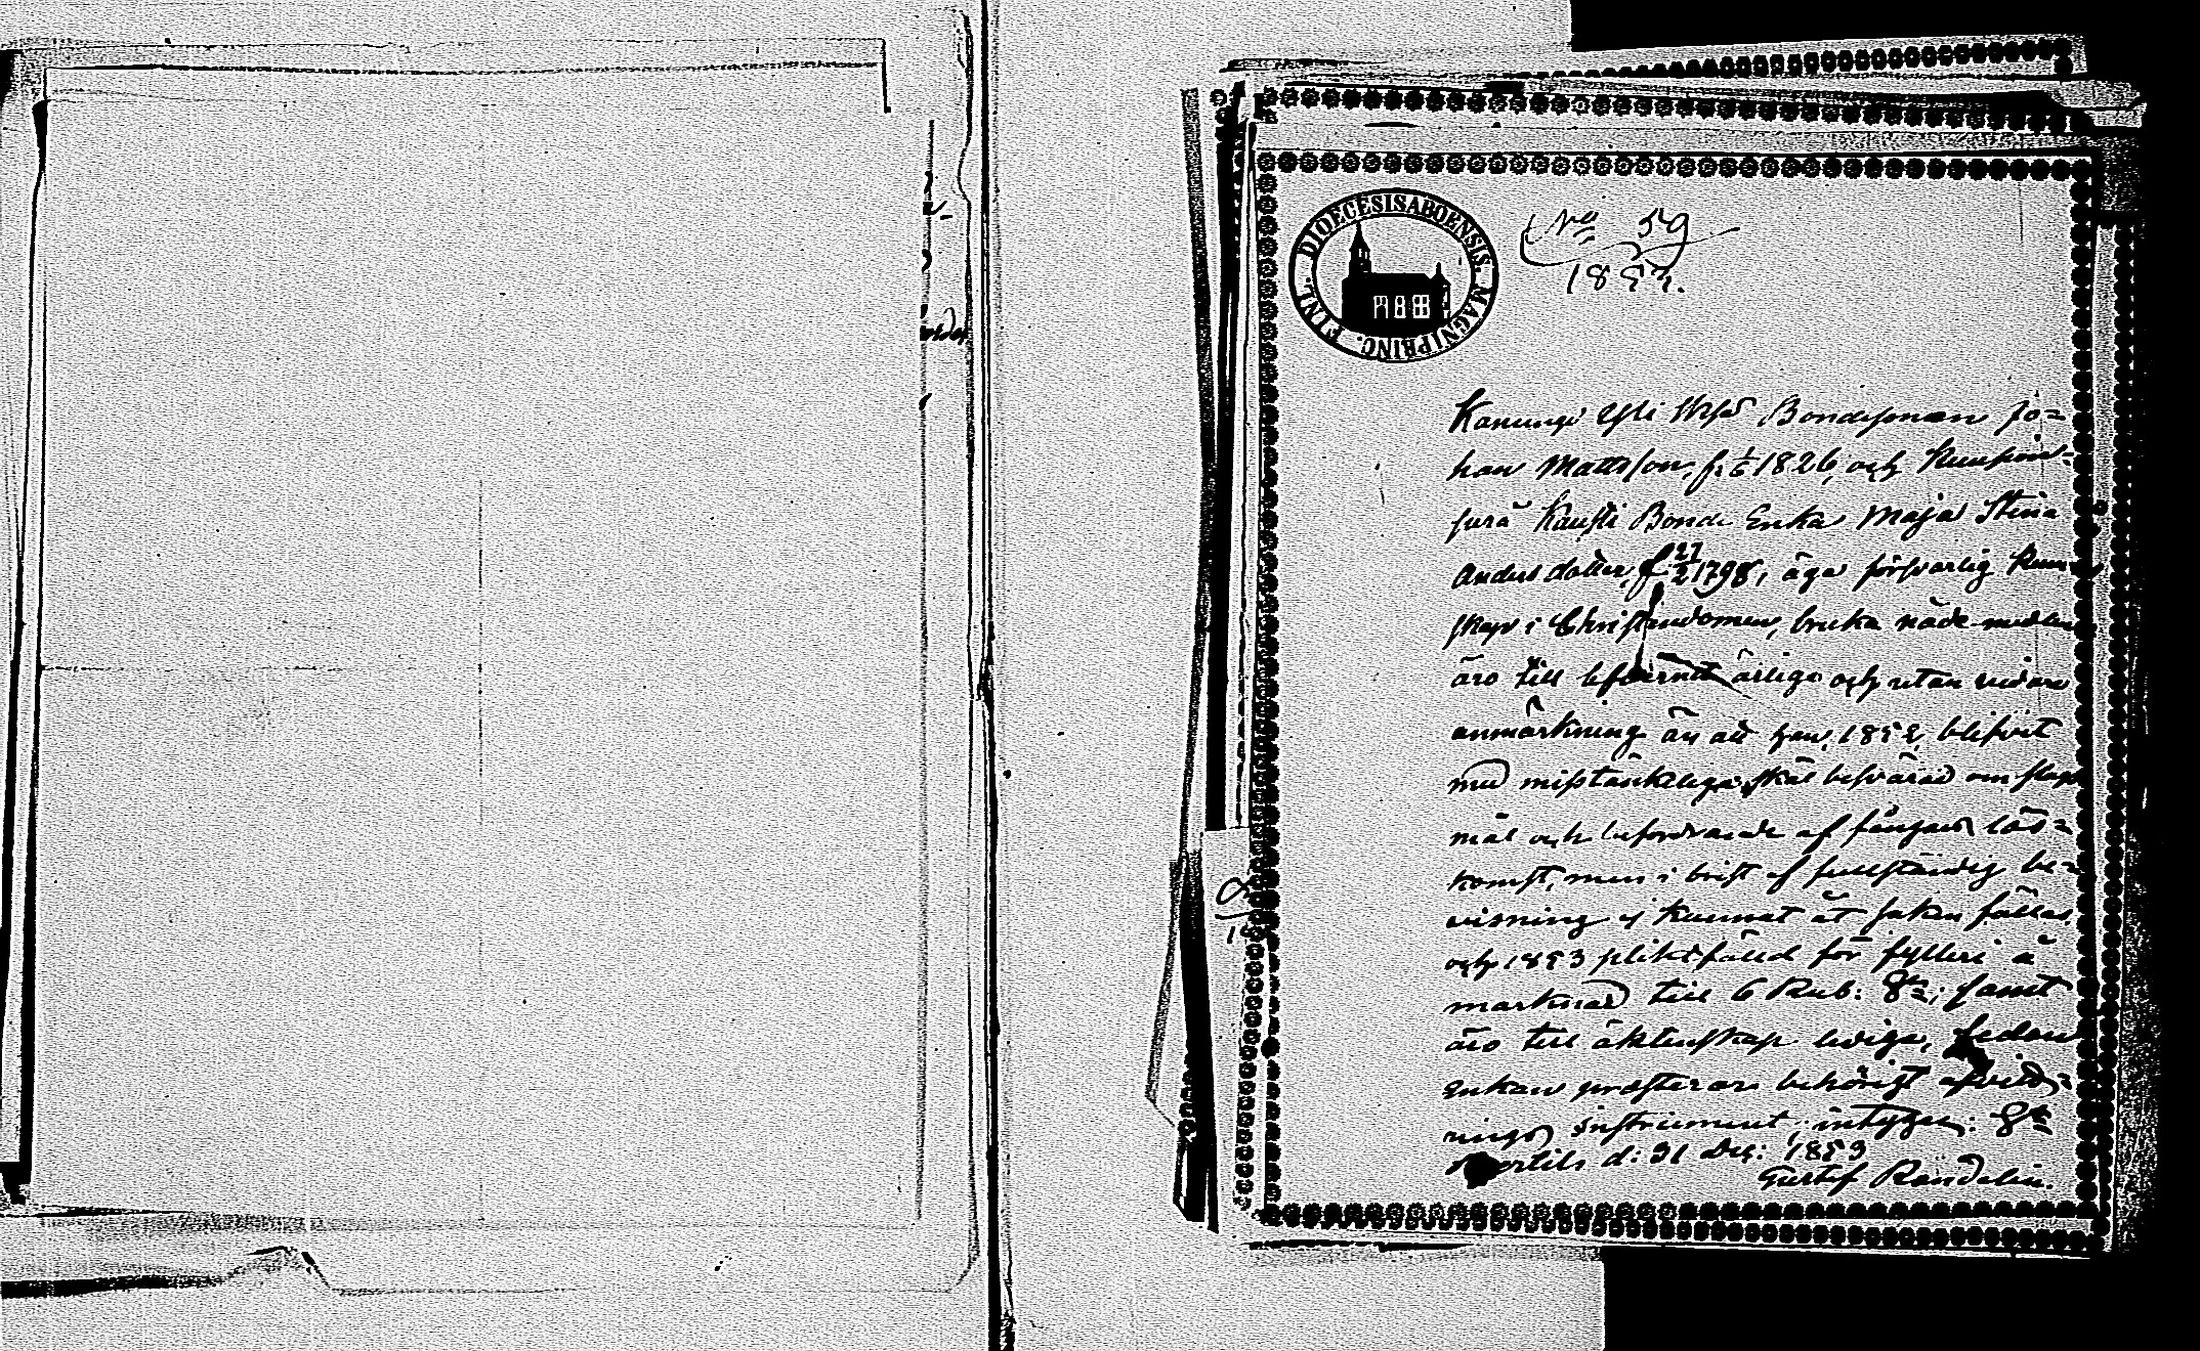 DIOECESIS ABOENSIS. MAGNI PRINC. FINL.
No 59
1853.
Bondesonen Jo=
han Mattsson, f. 1/6 1826, och
Bonde Enka Maja Stina
Anders dotter, f. 27/2 1798, äga försvarlig kun-
skap i Christendomen, bruka nådemedlen
äro till lefvernet ärlige och utan vidare
anmärkning än att han, 1852, blifvit
med misstänkeliga skäl besvärad om slags
mål och befordrande af fångars lös=
komst, men i brist af fullständig be=
visning ej kunnat åt saken fällas,
och 1853 pliktfälld för fylleri å
marknad till 6 Rub: Sr; samt
äro till äktenskap lediga, sedan
enkan presterar behörigt afvitt=
rings instrument, intygar:
d: 31 Dec: 1853
Gustaf Randelin.